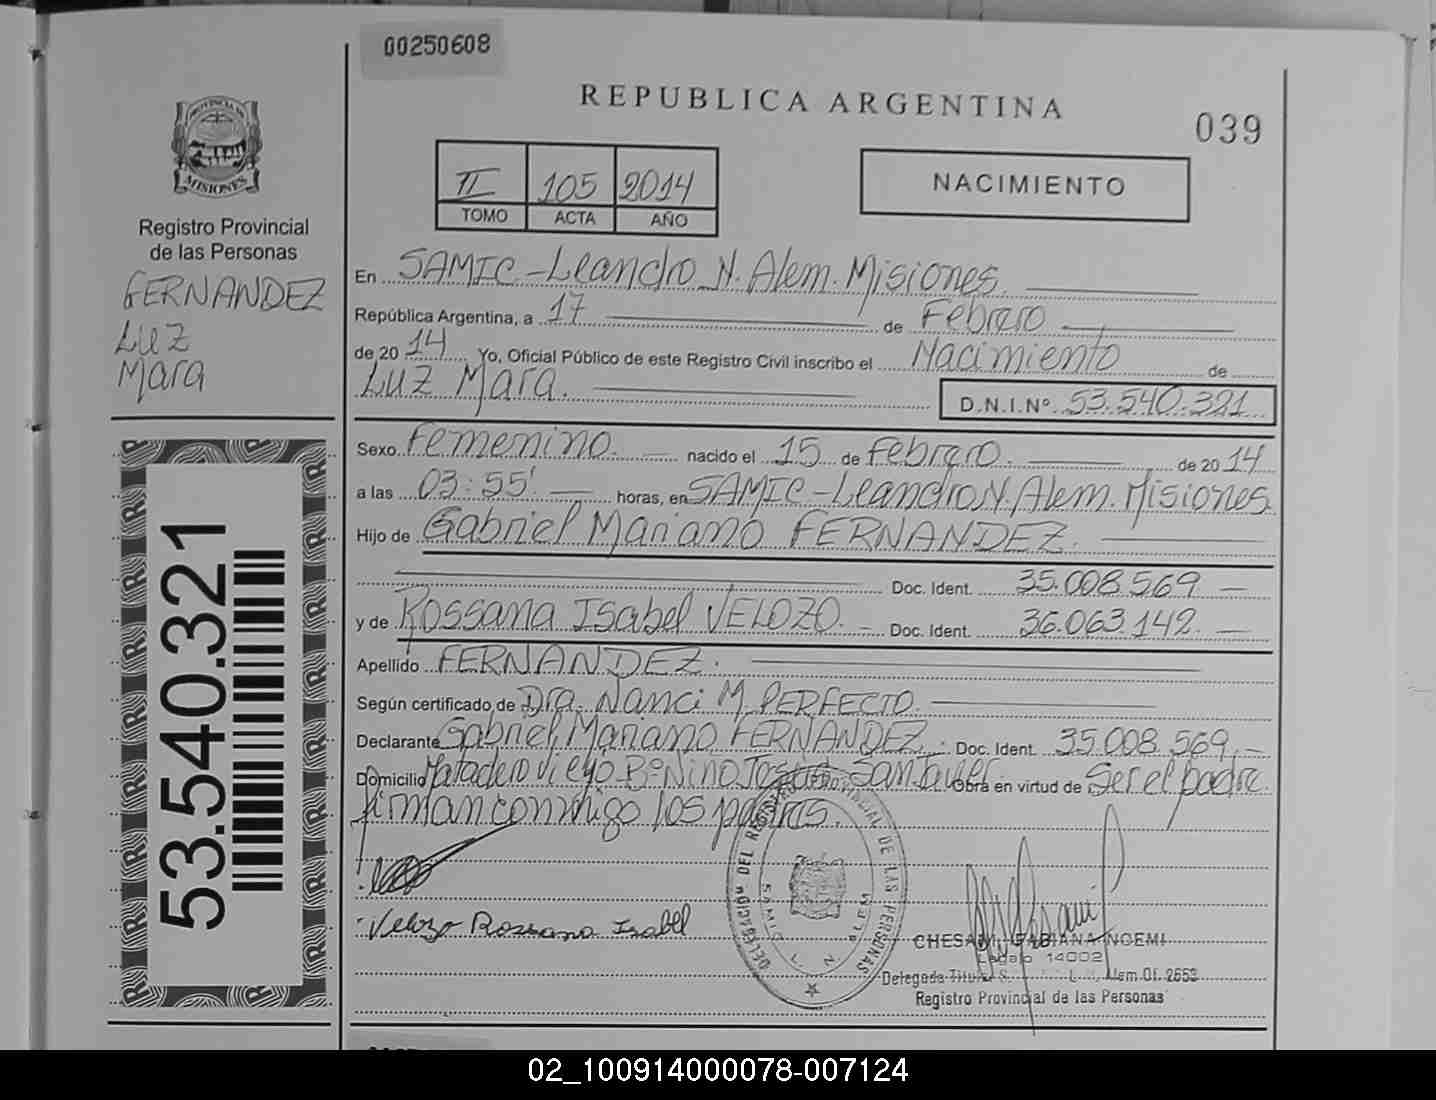 00250608
REPUBLICA ARGENTINA
039
PROVINCIA DE
MISIONES
Registro Provincial
de las Personas
FERNANDEZ
Luz
Mara
II 105 2014
TOMO ACTA AÑO
NACIMIENTO
En SAMIC-Leandro N. Alem. Misiones
República Argentina, a 17 de Febrero
de 2014 Yo, Oficial Público de este Registro Civil inscribo el Nacimiento de
Luz Mara.
D.N.I.Nº 53.540.321
Sexo Femenino. nacido el 15 de Febrero. de 2014
a las 03:55' horas, en SAMIC-Leandro N. Alem. Misiones.
Hijo de Gabriel Mariano FERNANDEZ.
Doc. Ident. 35.008.569
y de Rossana Isabel VELOZO. Doc. Ident. 36.063.142.
Apellido FERNANDEZ.
Según certificado de Dra. Nanci M. PERFECTO.
Declarante Gabriel Mariano FERNANDEZ. Doc. Ident. 35.008.569.
Domicilio Matadero viejo Bº Niño Jesus San Javier Obra en virtud de Ser el padre.
firman conmigo los padres.
Velozo Rossana Isabel
DELEGACION DEL REGISTRO PROVINCIAL DE LAS PERSONAS
SAMIC L. N. ALEM
CHESANI, FABIANA NOEMI
Legajo 14002
Delegada Titular L. N. Alem Of. 2653
Registro Provincial de las Personas
53.540.321
02_100914000078-007124